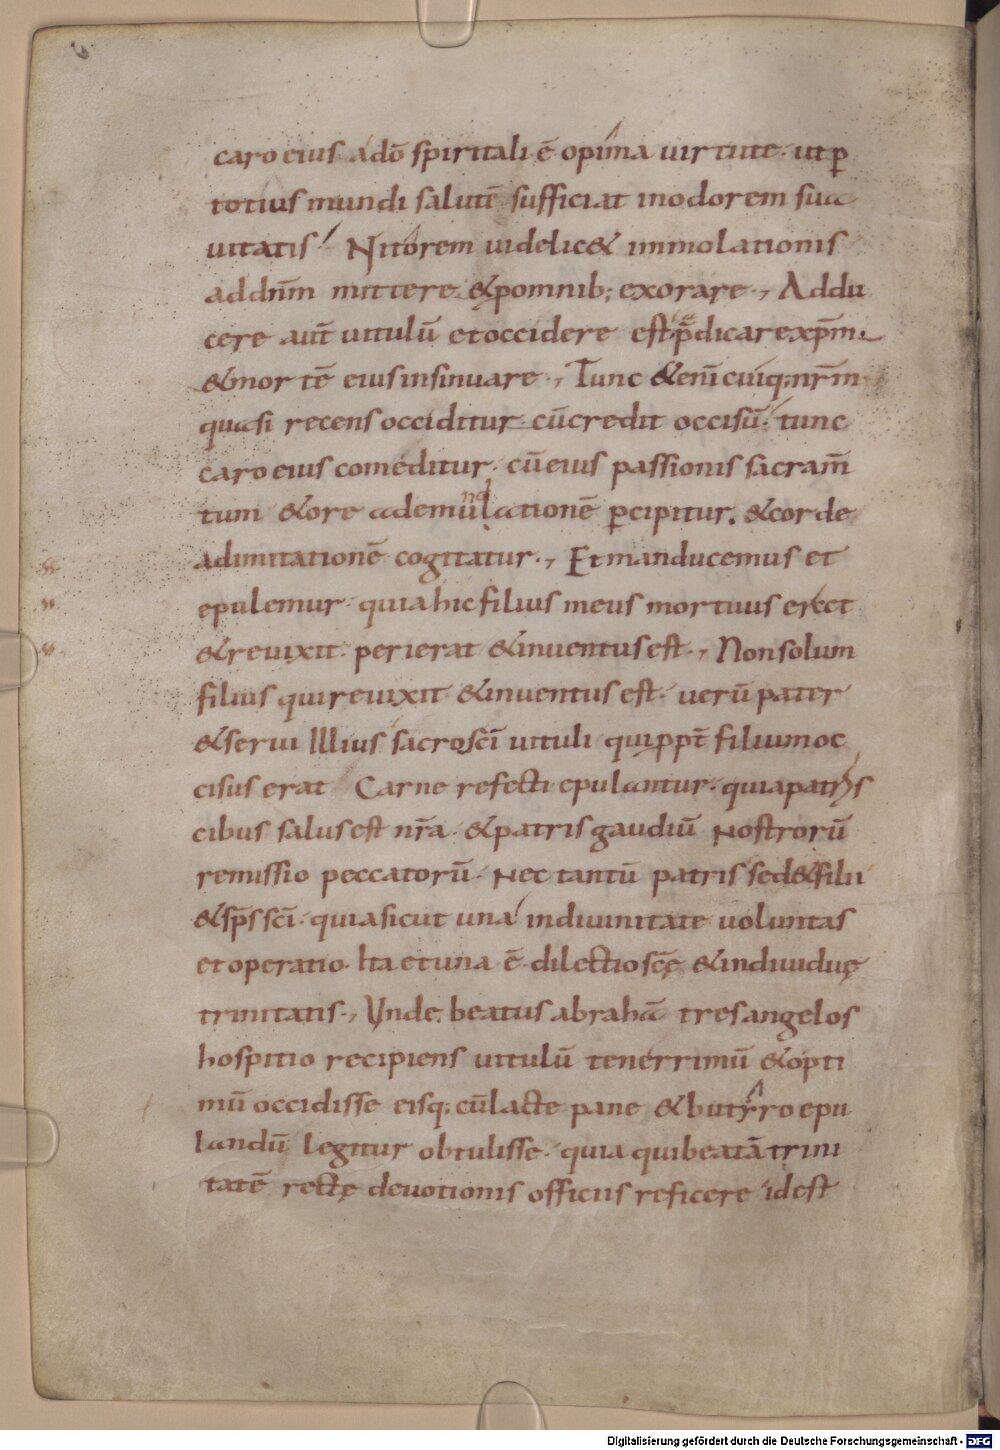 caro eius adō spiritali ē opima uirtute. ut ꝑ
totius mundi salutē sufficiat in odorem sua
uitatis. Nitorem uidelic& immolationis
ad dn̄m mittere & ꝑ omnib; exorare., Addu
cere aut̄ uitulū et occidere est p̄dicare xp̄m.
& mortē eius insinuare., Tunc &eni cuiq; nr̄m
quasi recens occiditur. cū credit occisū. tunc
caro eius comeditur. cū eius passionis sacram̄
tum & ore ad emundationē ꝑcipitur. & corde
ad imitationē cogitatur., Et manducemus et
epulemur. quia hic filius meus mortuus erat
& reuixit. perierat & inuentus est., Non solum
filius qui reuixit & inuentus est. uerū pater
& serui Illius sacrosc̄i uituli qui ppt̄ filium oc
cisus erat Carne refecti epulantur. quia patris
cibus salus est nr̄a. & patris gaudiū Nostrorū
remissio peccatorū. Nec tantū patris sed & filii
& sp̄s sc̄i. quia sicut una in diuinitate uoluntas
et operatio. Ita et una ē dilectio sc̄ę & indiuiduę
trinitatis., Unde. beatus abrahā tres angelos
hospitio recipiens uitulū tenerrimū & opti
mū occidisse eisq; cū lacte pane & butyro epu
landū legitur obtulisse. quia qui beatā trini
tatē rectę deuotionis officiis reficere id est
Digitalisierung gefördert durch die Deutsche Forschungsgemeinschaft - DFG